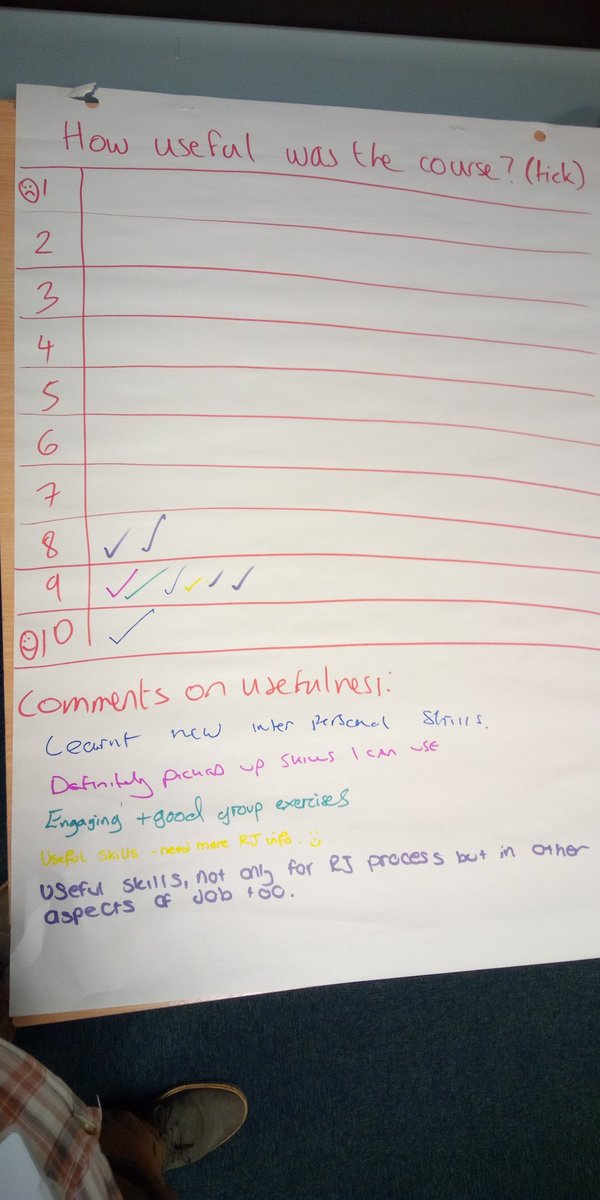 How useful was the course? (tick)
1
2
3
4
5
6
7
8 ✓ ✓
9 ✓ ✓ ✓ ✓ ✓ ✓
10 ✓
Comments on usefulness:
Learnt new inter personal skills.
Definitely picked up skills I can use
Engaging + good group exercises
Useful skills - need more RJ info. :)
Useful skills, not only for RJ process but in other
aspects of job too.